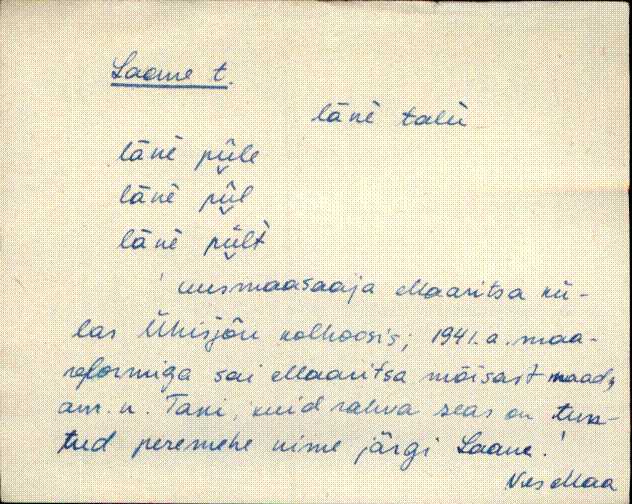 Laane t.
länè talu
länè püle
länè pül
länè pült
uusmaasaaja Maaritsa kü-
las Ühisjõu kolhoosis; 1941.a. maa-
reformiga sai Maaritsa mõisast maad,
am. n. Tani, kuid rahva seas on tun-
tud peremehe nime järgi Laane.
V. es Maa